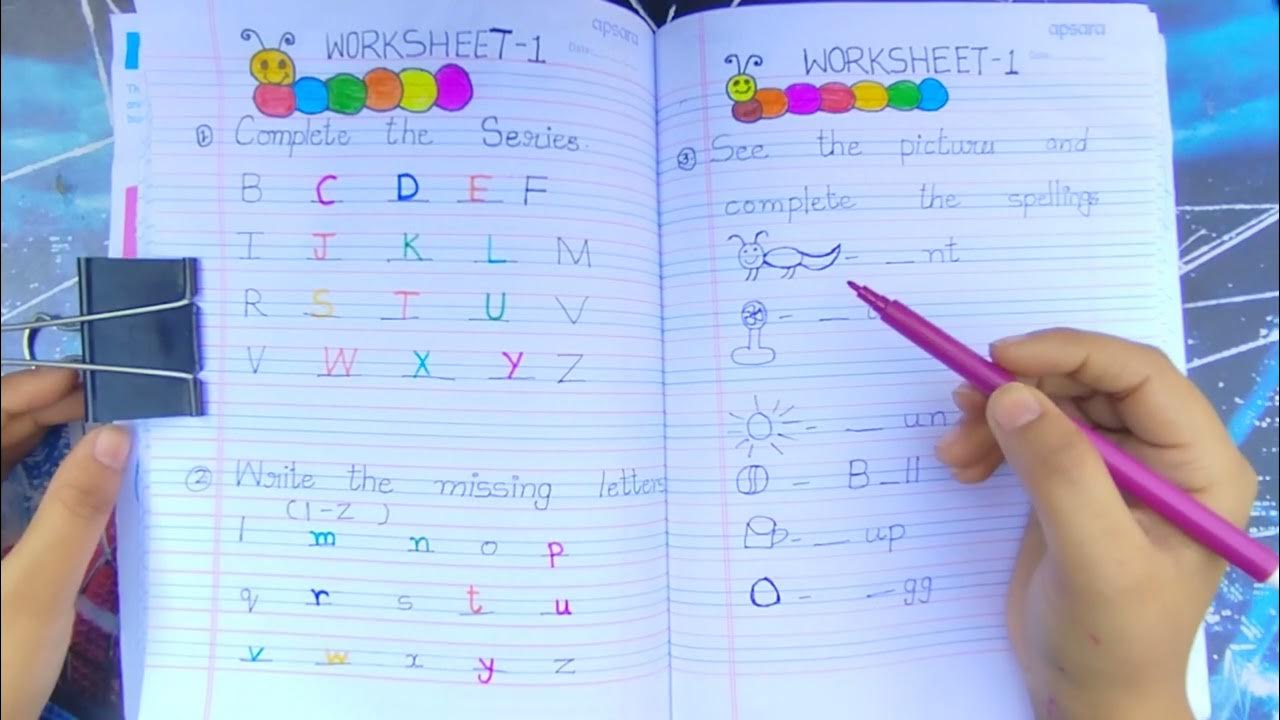 apsara
WORKSHEET-1
① Complete the Series.
B C D E F
I J K L M
R S T U V
V W X Y Z
② Write the missing letters
(l-z)
l m n o p
q r s t u
v w x y z
apsara
WORKSHEET-1
③ See the picture and
complete the spellings
- _nt
- _
- _ un
- B_ll
- _ up
- _gg